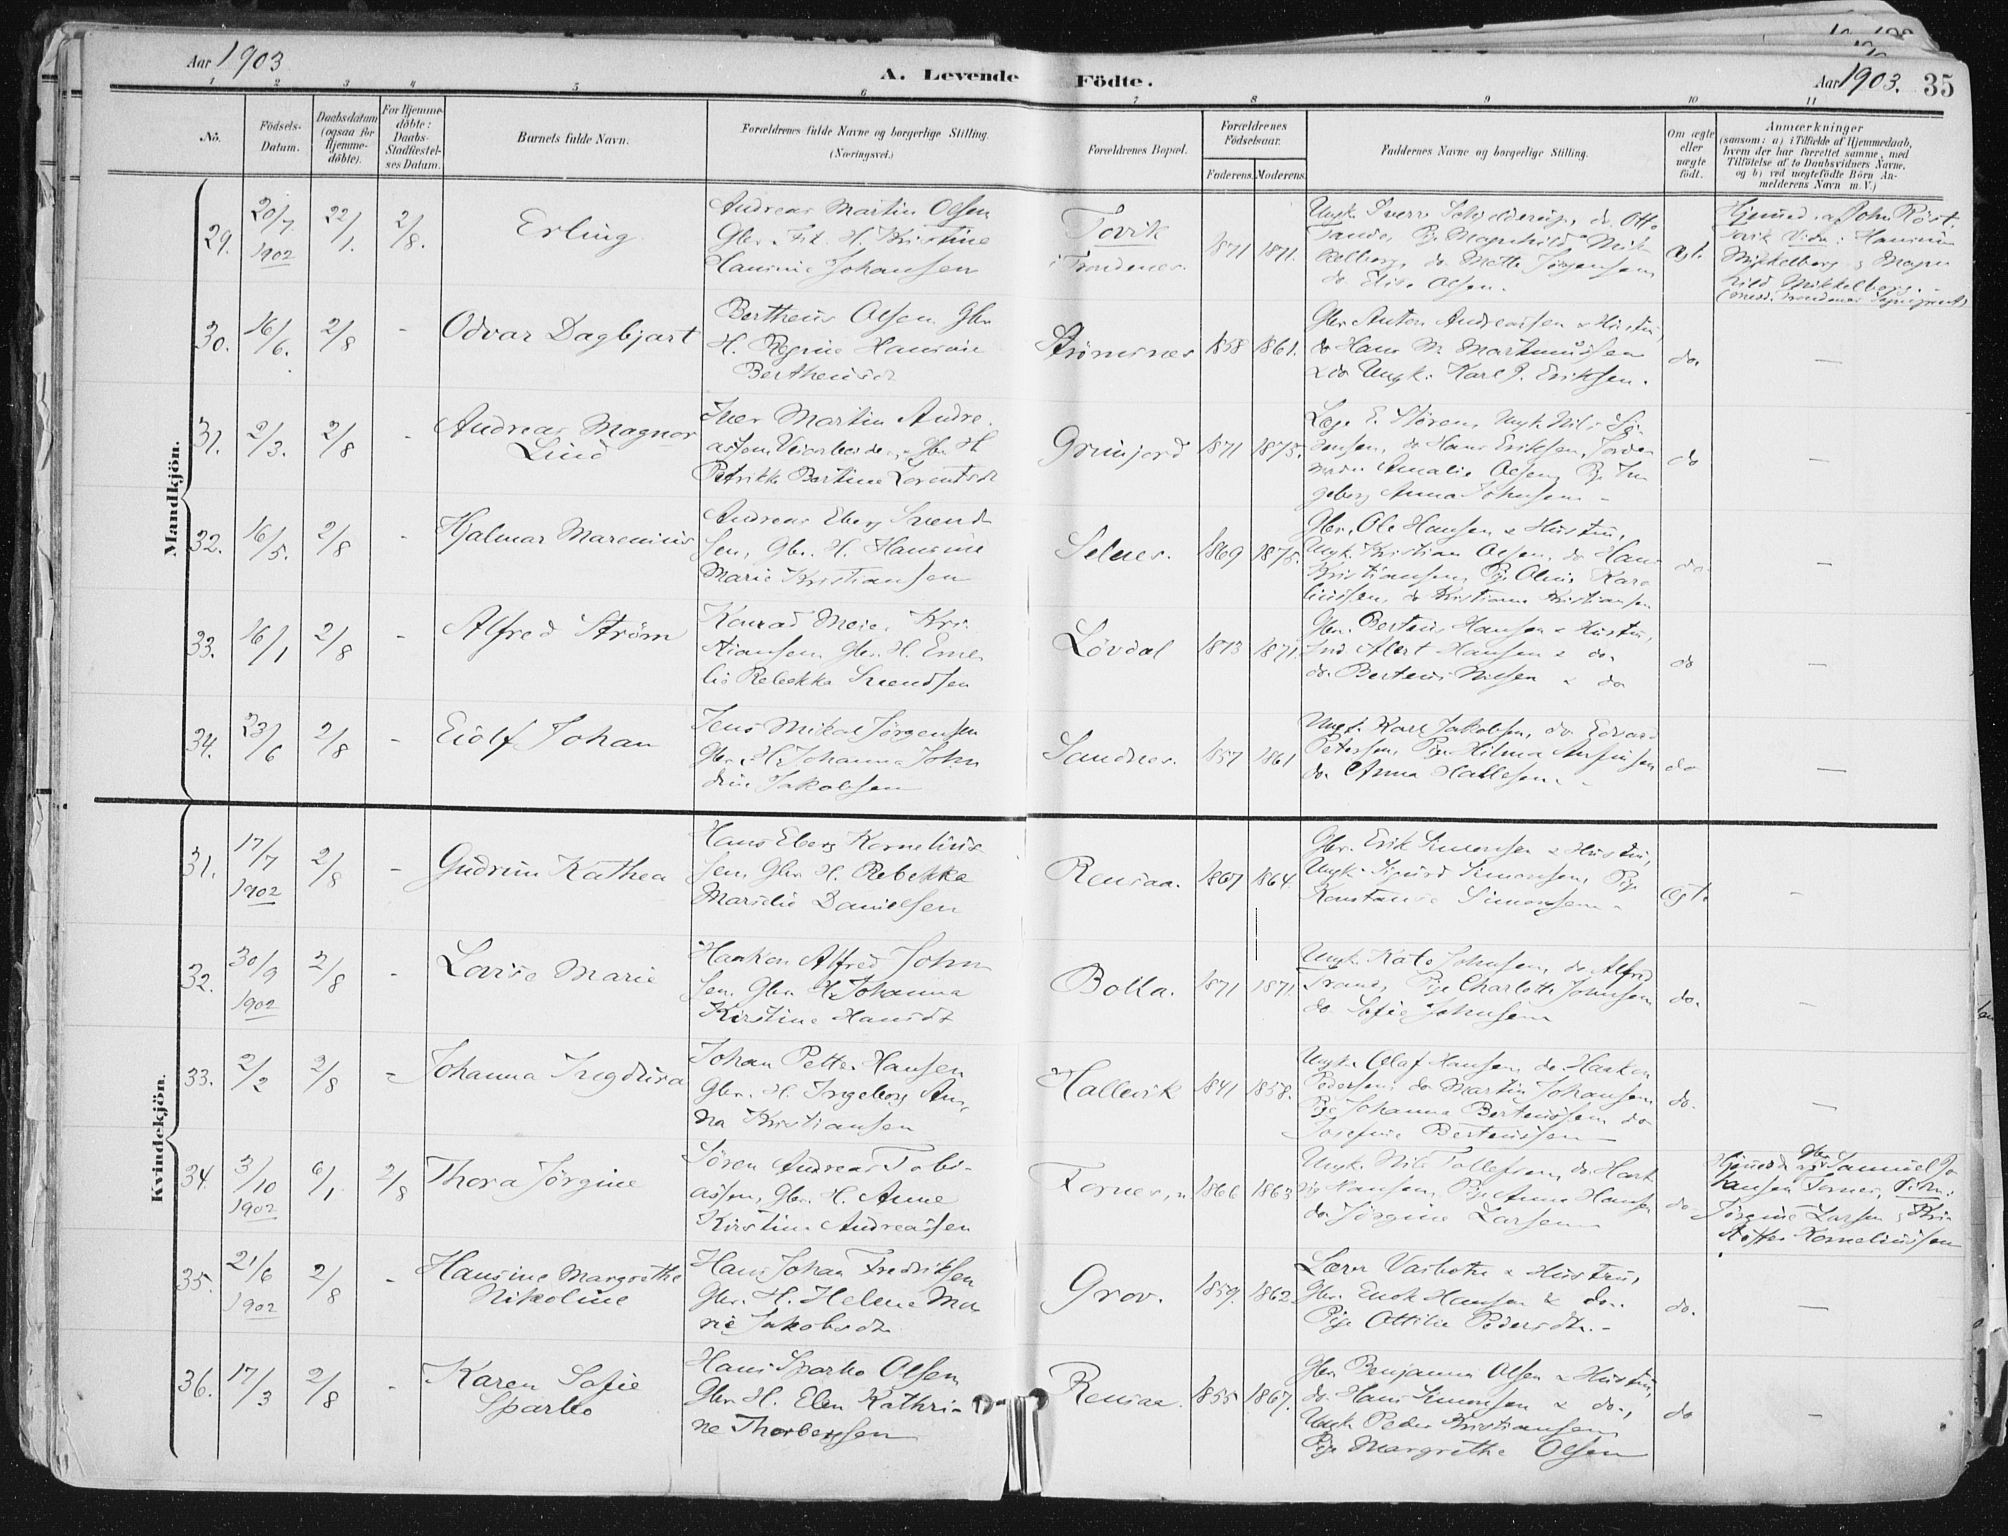 Aar 1903
A. Levende Födte.
Aar 1903. 35
1 2 3 4 5 6 7 8 9 10 11
No.
Födsels-
Datum.
Daabsdatum
(ogsaa for
Hjemme-
döbte).
For Hjemme-
döbte:
Daabs-
Stadfæstel-
ses Datum.
Barnets fulde Navn.
Forældrenes fulde Navne og borgerlige Stilling.
(Næringsvei.)
Forældrenes Bopæl.
Forældrenes
Födselsaar.
Faderens. Moderens.
Faddernes Navne og borgerlige Stilling.
Om ægte
eller
uægte
födt.
Anmærkninger
(saasom: a) i Tilfælde af Hjemmedaab,
hvem der har forrettet samme, med
Tilföielse af to Daabsvidners Navne,
og b) ved uægtefödte Börn An-
melderens Navn m. V.)
Mandkjön.
29. 20/7 1902 22/1. 2/8. Erling
Andreas Martin Olsen
Gbr. H. Kristine
Hansine Johansen
Tovik
i Trondenes. 1871 1871.
do Elise Olsen.
Ægt.
30. 16/6. 2/8 - Odvar Dagbjart
Bertheus Olsen Gbr
H. Regine Hansine
Bertheusdt
Strømsnes 1858 1861.
Gbr Anton Andreassen & Hustru,
do Hans M Martinussen
Ungk. Karl J. Eriksen.
do —
31. 2/3. 2/8 - Andreas Magnor
Lind
Iver Martin Andre
assen
Petrikke Bertine Lorentsdt
Grunjord 1871 1875.
Hans Eriksen, Jorde
moder Amalie Olsen, Pi In
geborg Anna Johnsen -
do —
32. 16/5. 2/8 - Hjalmar Marenius
Andreas Eberg Svend
sen, Gbr. H. Hansine
Marie Kristiansen
Selnes. 1869 1875.
Gbr. Ole Hansen & Hustru,
Ungk. Kristian Olsen, do Hans
Kristiansen, Pige Kare
liussen, do Kristiane Kristiansen
do —
33. 16/1 2/8 - Alfred Strøm
Konrad Meier Kri
stiansen Gbr. H. Eme
lie Rebekka Svendsen
Løvdal 1873 1871
Gbr. Berteus Hansen & Hustru,
Albert Hansen & do
do Berteus Nilsen & do
do —
34. 23/6 2/8 - Eiolf Johan
Jens Mikal Jørgensen
Gbr. H. Johanna John
dine Jakobsen
Sandnes. 1857 1861
Ungk. Karl Jakobsen, do Edvard
Petersen, Pige Hilma
do Anna Hallesen.
do —
Kvindekjön.
31. 17/7 1902 2/8 - Gudrun Kathea
Hans Eberg Kornelius
sen Gbr. H. Rebekka
Marselie Danielsen
Rensaa. 1867 1864.
Gbr. Erik Simonsen & Hustru,
Ungk. Sigurd Simonsen, Pige
Konstanse Simonsen.
Ægt. —
32. 30/9 1902 2/8 - Lovise Marie
Haakon Alfred John
sen Gbr. H. Johanna
Kirstine Hansdt
Bolla. 1871 1871.
Ungk. Kato Johnsen, do Alfred
Trane, Pige Charlotte Johnsen
do Sofie Johnsen
do. —
33. 2/2 2/8 - Johanna Ingdura
Johan Petter Hansen
Gbr. H. Ingeborg An
na Kristiansen
Hallevik 1841 1858.
Ungk. Olaf Hansen do Haakon
Pedersen, do Martin Johansen
Pige Johanna Berteussen do
Josefine Berteussen
do. —
34. 3/10 1902 6/1 2/8 Thora Jørgine
Søren Andreas Tobi-
assen, Gbr. H. Anne
Kirstine Andreassen
Fornes 1866 1863
Ungk. Nils Tollefsen, do Hart
vig Hansen, Pige Anna Hansen
do Jørgine Larsen
do.
Hjemmed. af Gbr. Samuel Jo
hansen Fornes, Vidn:
Jørgine Larsen & Kri
stoffer Korneliussen
35. 21/6 1902 2/8 - Hansine Margrethe
Nikoline
Hans Johan Fredriksen
Gbr. H. Helene Ma
rie Jakobsdt.
Grov. 1859. 1862
Lærer Varboth & Hustru,
Gbr. Enok Hansen & do.
Pige Ottilie Pedersdt. -
do. —
36. 17/3 2/8 - Karen Sofie
Sparbo
Hans Sparbo Olsen
Gbr. H. Elen Kathri-
ne Thorbergsen
Rensaa. 1855 1867.
Gbr Benjamin Olsen & Hustru,
do Hans Simonsen & do.,
Ungk. Peder Kristiansen
Pige Margrethe Olsen
do —